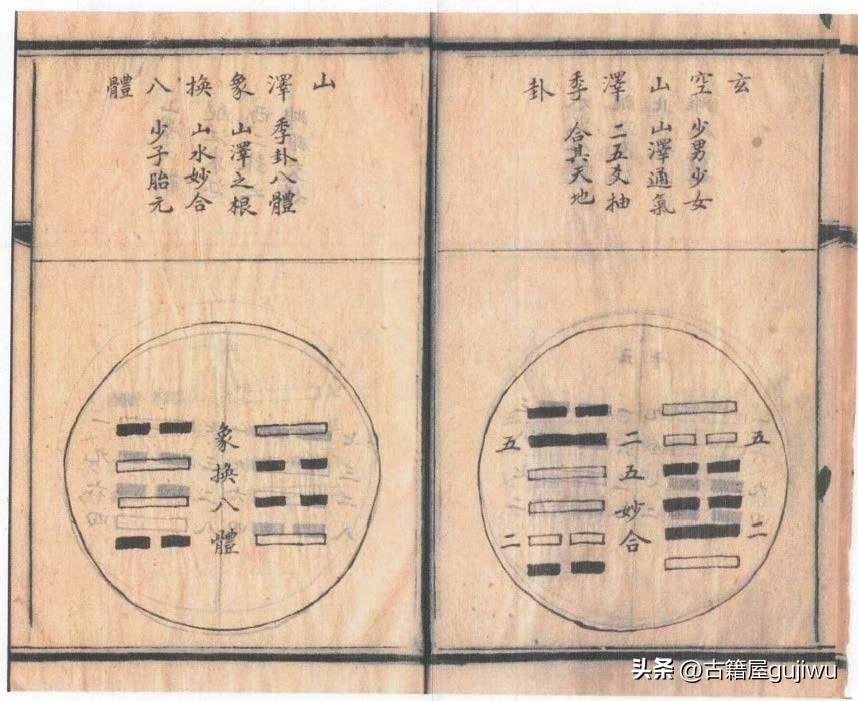 玄
空 少男少女
山 山澤通氣
澤 二五爻抽
季 合其天地
卦
五
二
二五妙合
五
二
山
澤 季卦八體
象 山澤之根
換 山水妙合
八 少子胎元
體
象換八體
头条 @古籍屋gujiwu